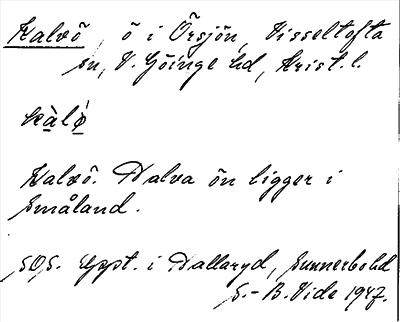 Kalvö, ö i Örsjön, Visseltofta
sn, V. Göinge hd, Krist. l.
kàlø
Kalvö. Halva ön ligger i
Småland.
SOS. Uppt. i Hallaryd, Sunnerbohd
S.-B. Vide 1947.